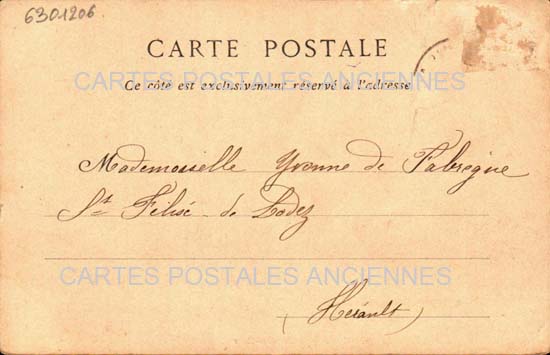 6301206
CARTE POSTALE
CARTES POSTALES ANCIENNES
Ce côté est exclusivement réservé à l'adresse
Mademoiselle Yvonne de Fabregue
St Félix de Lodez
CARTES POSTALES ANCIENNES
(Hérault)